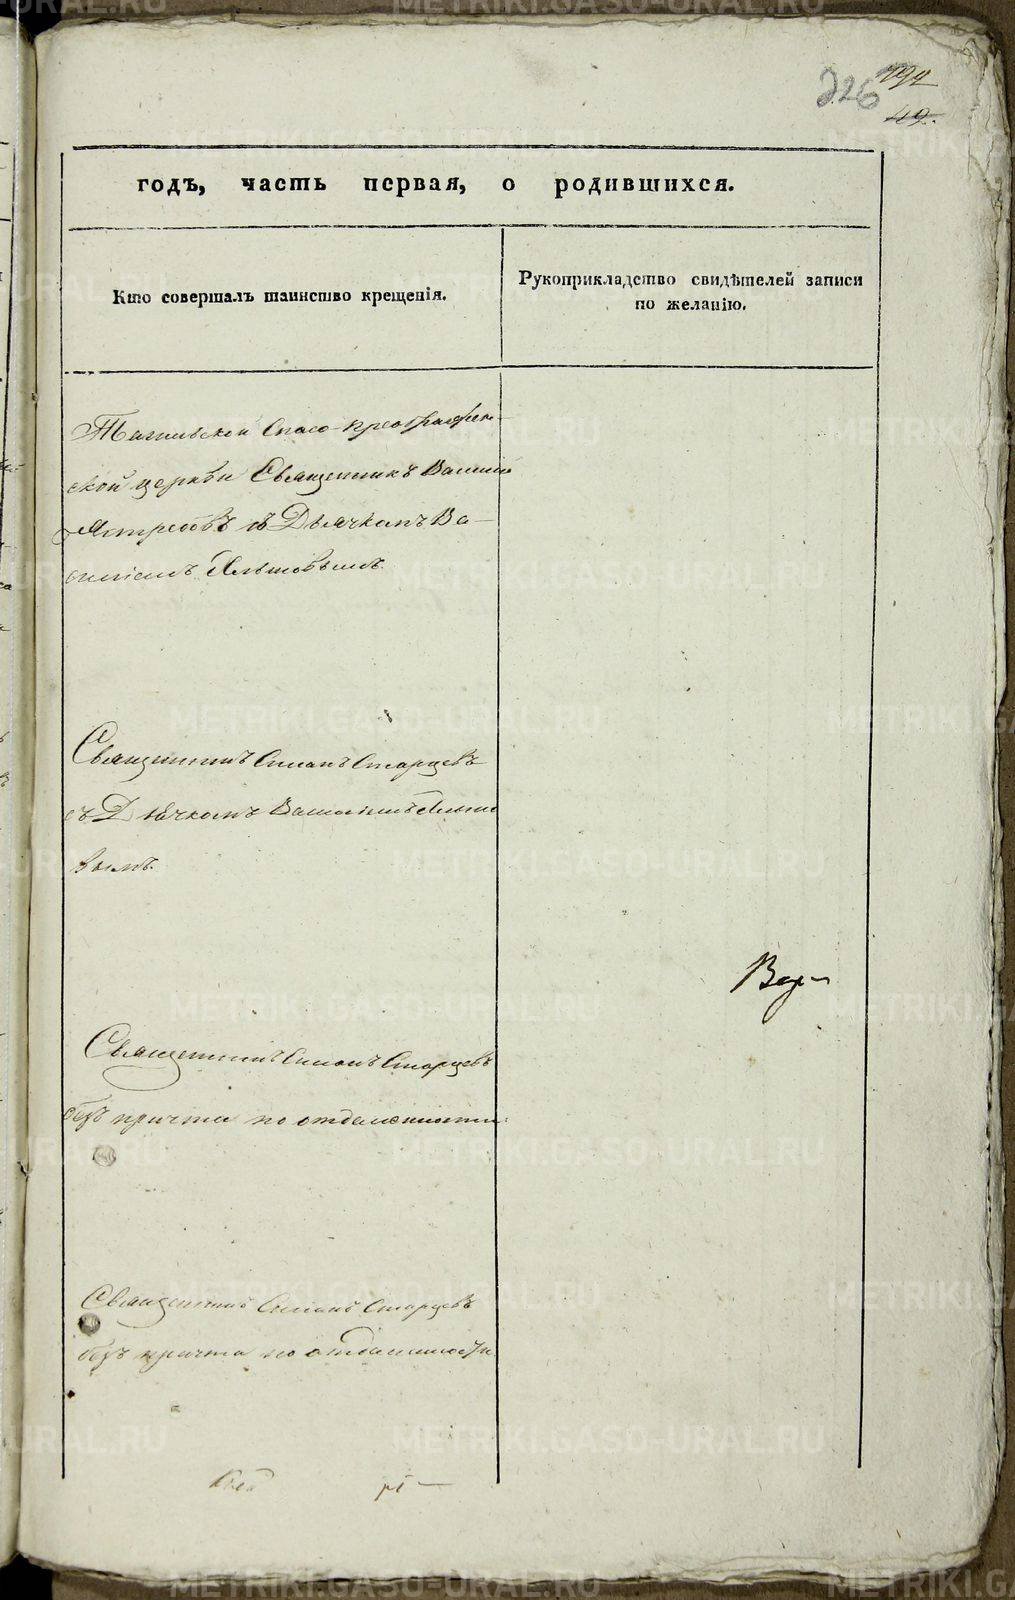 226
194
49.
годъ, часть первая, о родившихся.
Кто совершалъ таинство крещенія.
Рукоприкладство свидѣтелей записи
по желанію.
Тагильской Спасо-Преображен-
ской церкви Священникъ Василій
Ястребовъ съ Дьячкомъ Ва-
силіемъ
Священникъ Симонъ Старцевъ
съ Дьячкомъ Василіемъ
вымъ.
Священникъ Симонъ Старцевъ
безъ причта по отдаленности.
Священникъ Симонъ Старцевъ
безъ причта по отдаленности
METRIKI.GASO-URAL.RU